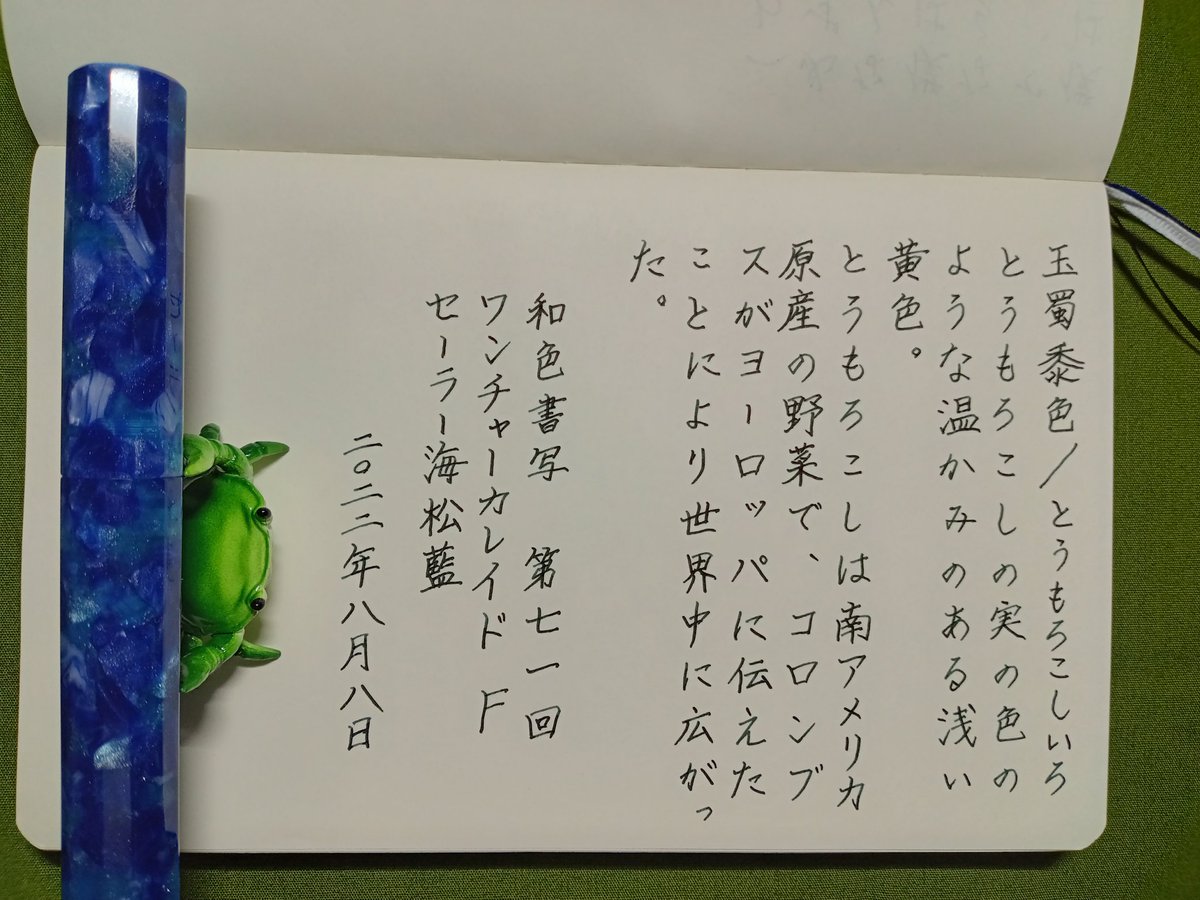 玉蜀黍色/とうもろこしいろ
とうもろこしの実の色の
ような温かみのある浅い
黄色。
とうもろこしは南アメリカ
原産の野菜で、コロンブ
スがヨーロッパに伝えた
ことにより世界中に広がっ
た。
和色書写 第七一回
ワンチャーカレイド F
セーラー海松藍
二〇二二年八月八日